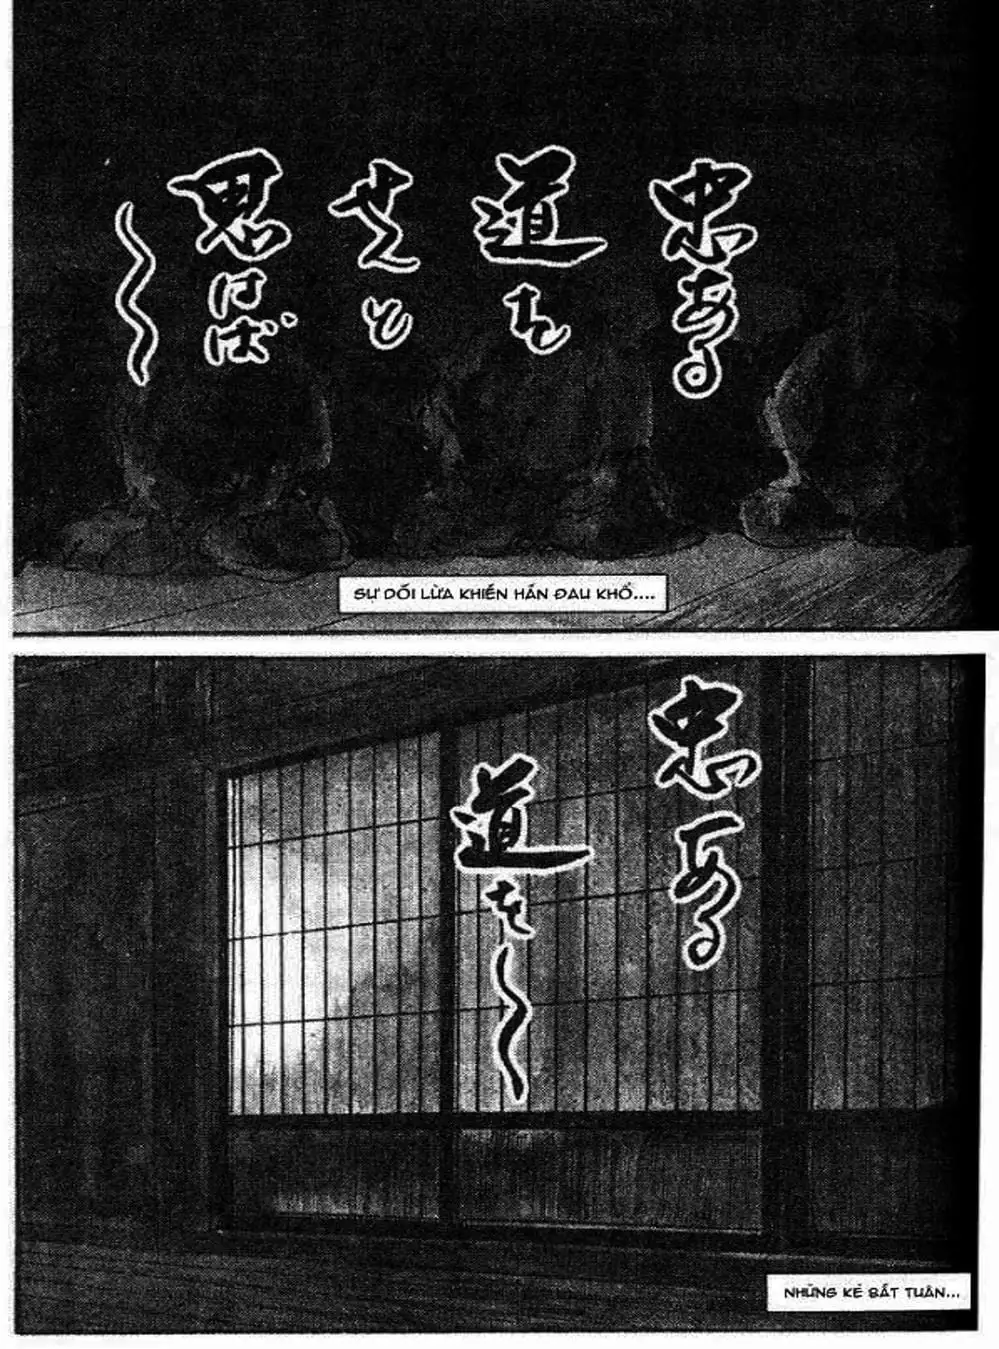 忠ある
道を
せんと
思はば
〜
SỰ DỐI LỪA KHIẾN HẮN ĐAU KHỔ....
忠ある
道を〜
NHỮNG KẺ BẤT TUÂN...